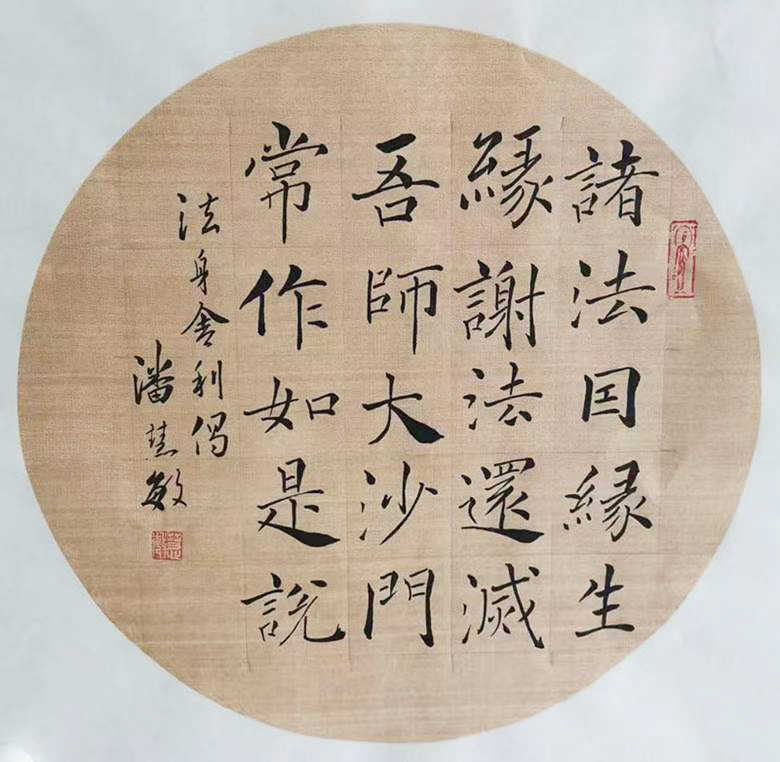 諸法因緣生
緣謝法還滅
吾師大沙門
常作如是說
法身舍利偈
潘慧敏